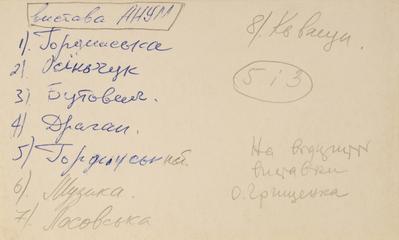 вистава АНУМ
1). Гординська
2). Осінчук
3). Бутович.
4). Драган.
5). Гординський
6). Музика.
7). Лясовська
8). Ковжун.
5 і 3
На відкритті
виставки
О. Грищенка